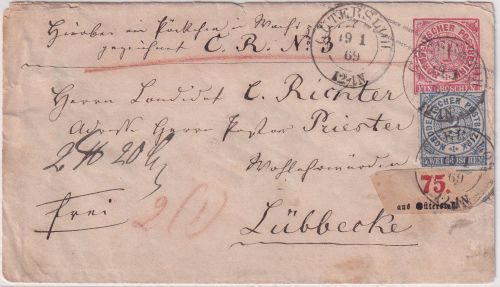 Hierbei ein Päckchen in Wachs
gezeichnet C. R. No 3
GÜTERSLOH
19 1
69
12-1N
NORDDEUTSCHER POSTBEZIRK
1
EIN GROSCHEN
NORDDEUTSCHER POSTBEZIRK
ZWEI GROSCHEN
Herrn Candidat C. Richter
Adresse Herrn Pastor Priester
2 ℔ 20
Wohlehrwürden
Frei
2 (1)
Lübbecke
75.
aus Gütersloh
69
12-1N